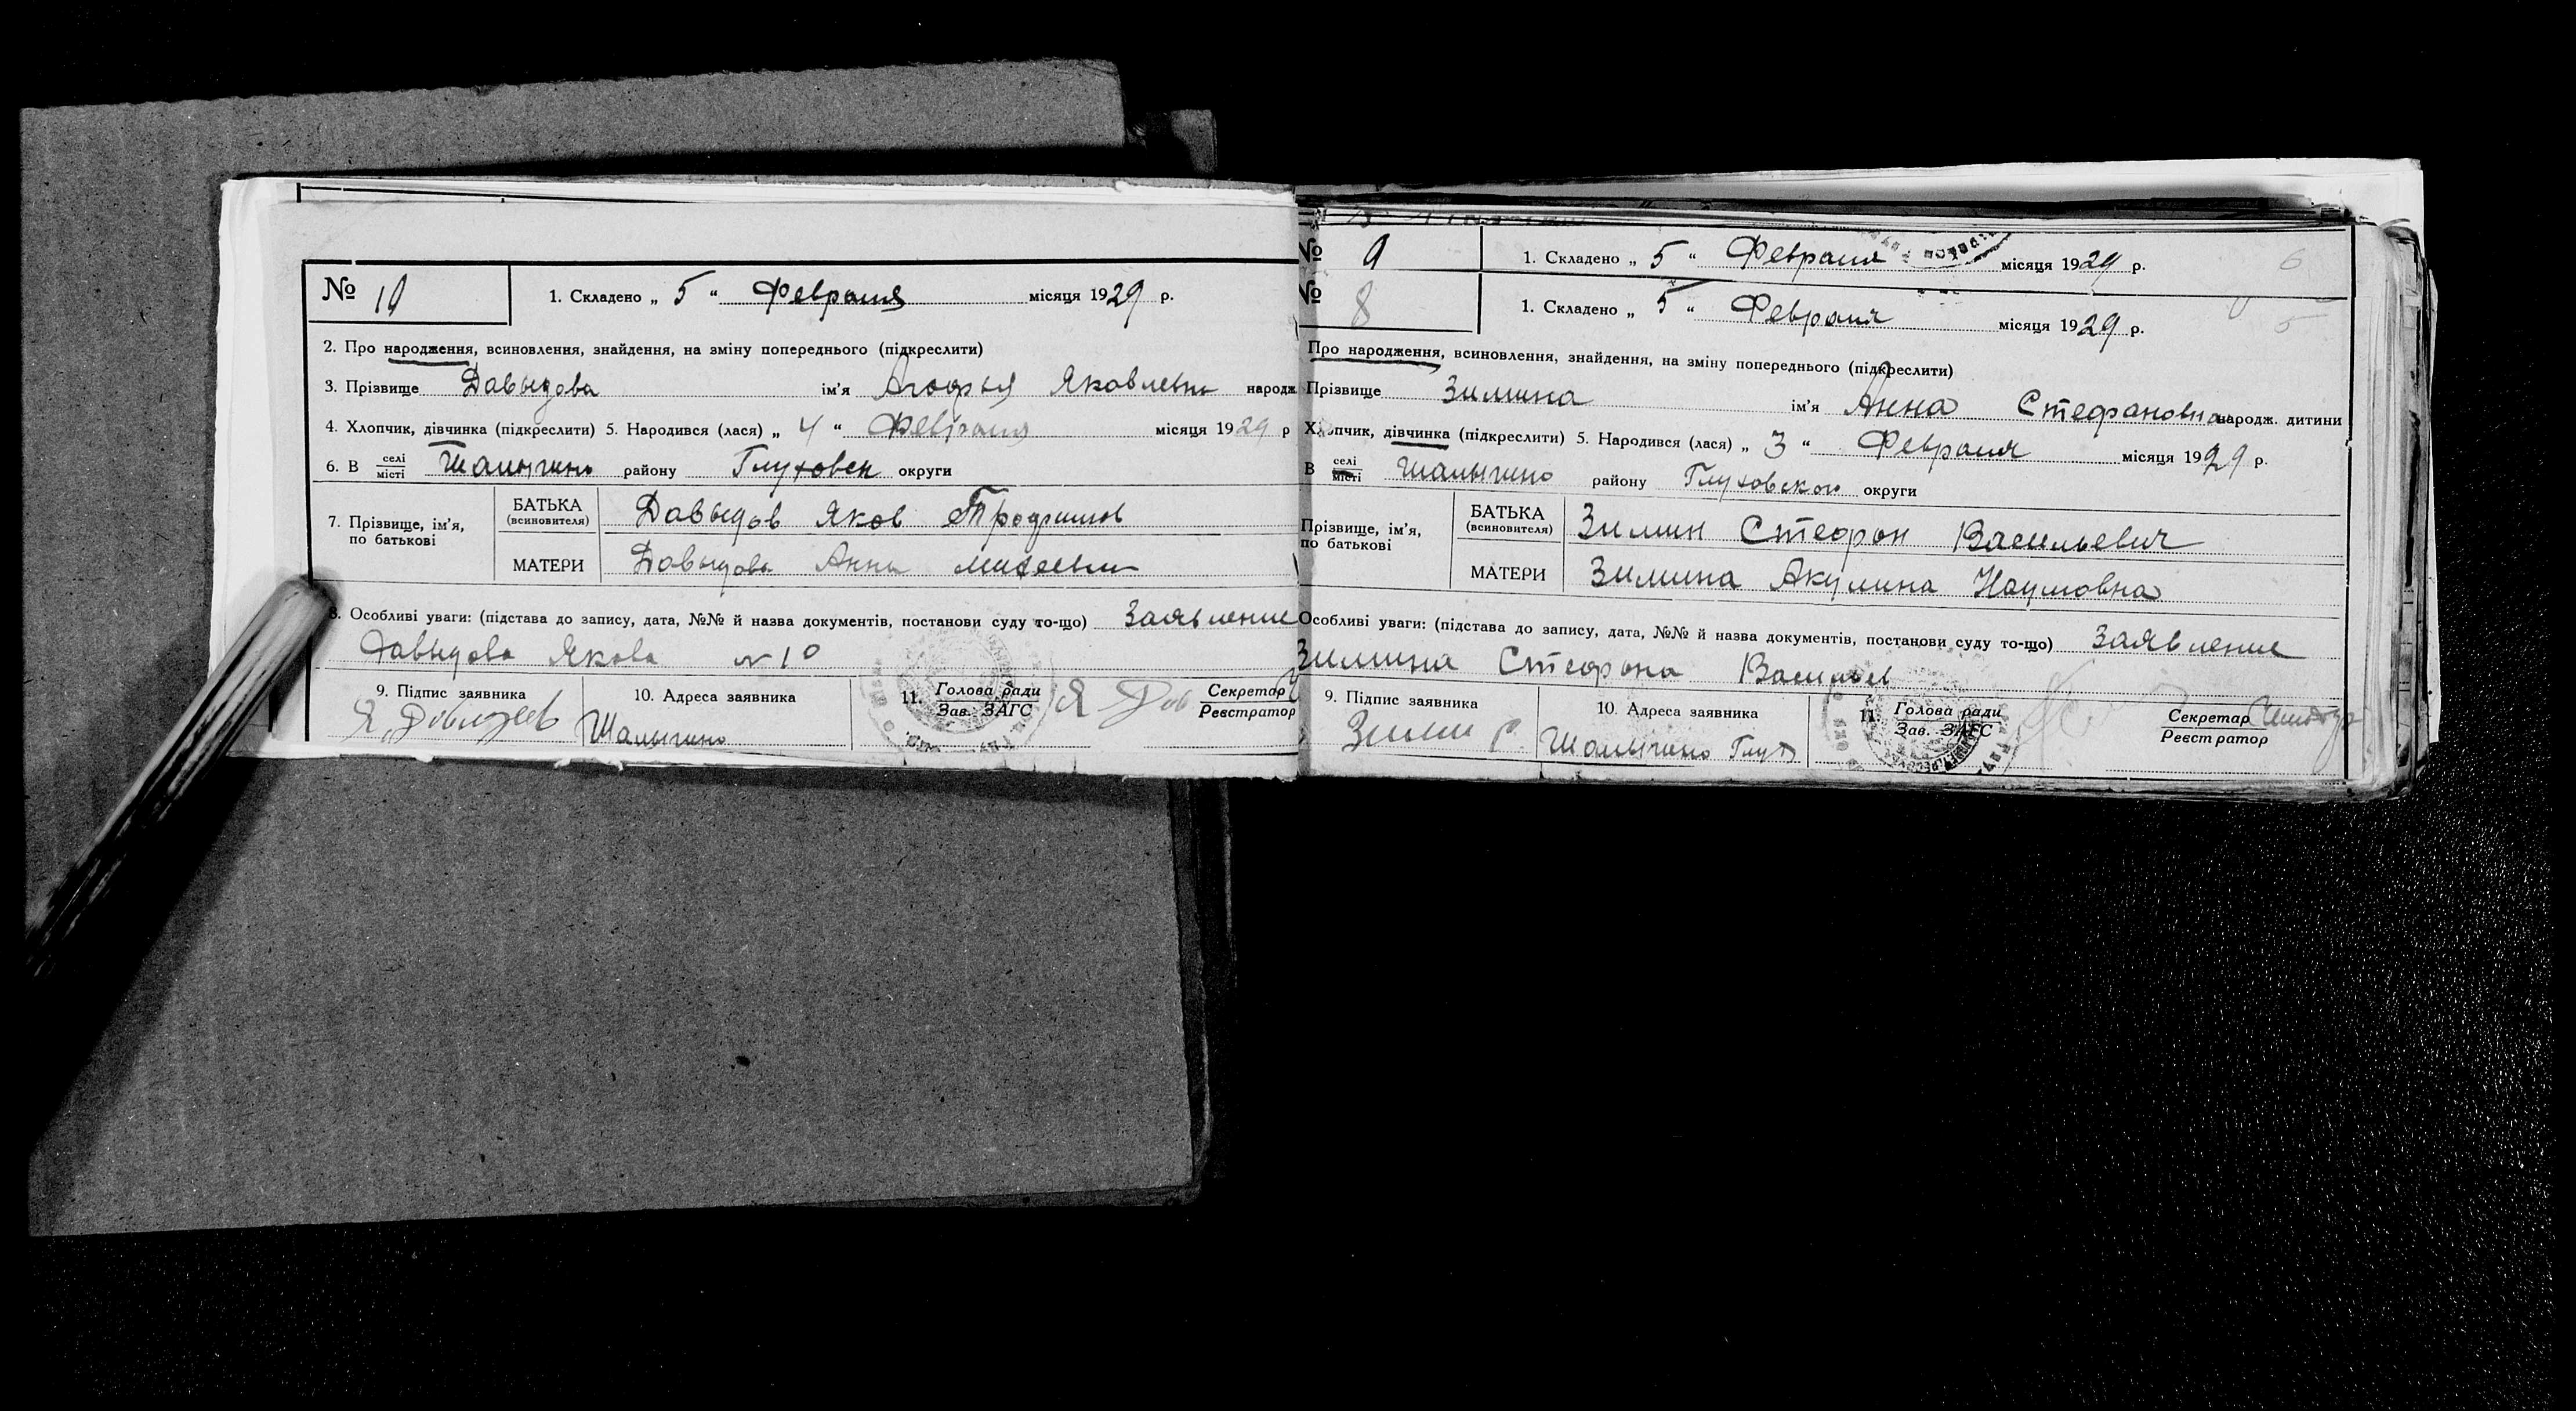 № 10
1. Складено „ 5 “ Февраля місяця 1929 р.
2. Про народження, всиновлення, знайдення, на зміну попереднього (підкреслити)
3. Прізвище Давыдова ім'я Агофья Яковлевна народж
4. Хлопчик, дівчинка (підкреслити) 5. Народився (лася) „ 4 “ Февраля місяця 1929 р
6. В селі/місті Шалыгино району Глуховск округи
7. Прізвище, ім'я, по батькові
БАТЬКА (всиновителя) Давыдов Яков
МАТЕРИ Давыдова Анна
8. Особливі уваги: (підстава до запису, дата, №№ й назва документів, постанови суду то-що) Заявление
Давыдова Якова № 10
9. Підпис заявника Я. Давыдов
10. Адреса заявника Шалыгино
11. Голова ради/Зав. ЗАГС
Секретар/Реєстратор
№ 9
1. Складено „ 5 “ Февраля місяця 1929 р.
6
№ 8
1. Складено „ 5 “ Февраля місяця 1929 р.
5
Про народження, всиновлення, знайдення, на зміну попереднього (підкреслити)
Прізвище Зимина ім'я Анна Стефановна народж. дитини
Хлопчик, дівчинка (підкреслити) 5. Народився (лася) „ 3 “ Февраля місяця 1929 р.
В селі/місті Шалыгино району Глуховской округи
Прізвище, ім'я, по батькові
БАТЬКА (всиновителя) Зимин Стефон Васильевич
МАТЕРИ Зимина Акулина Наумовна
Особливі уваги: (підстава до запису, дата, №№ й назва документів, постанови суду то-що) Заявление
Зимина Стефона Васильев
9. Підпис заявника Зимин С.
10. Адреса заявника Шалыгино Глух
11. Голова ради/Зав. ЗАГС
Секретар/Реєстратор